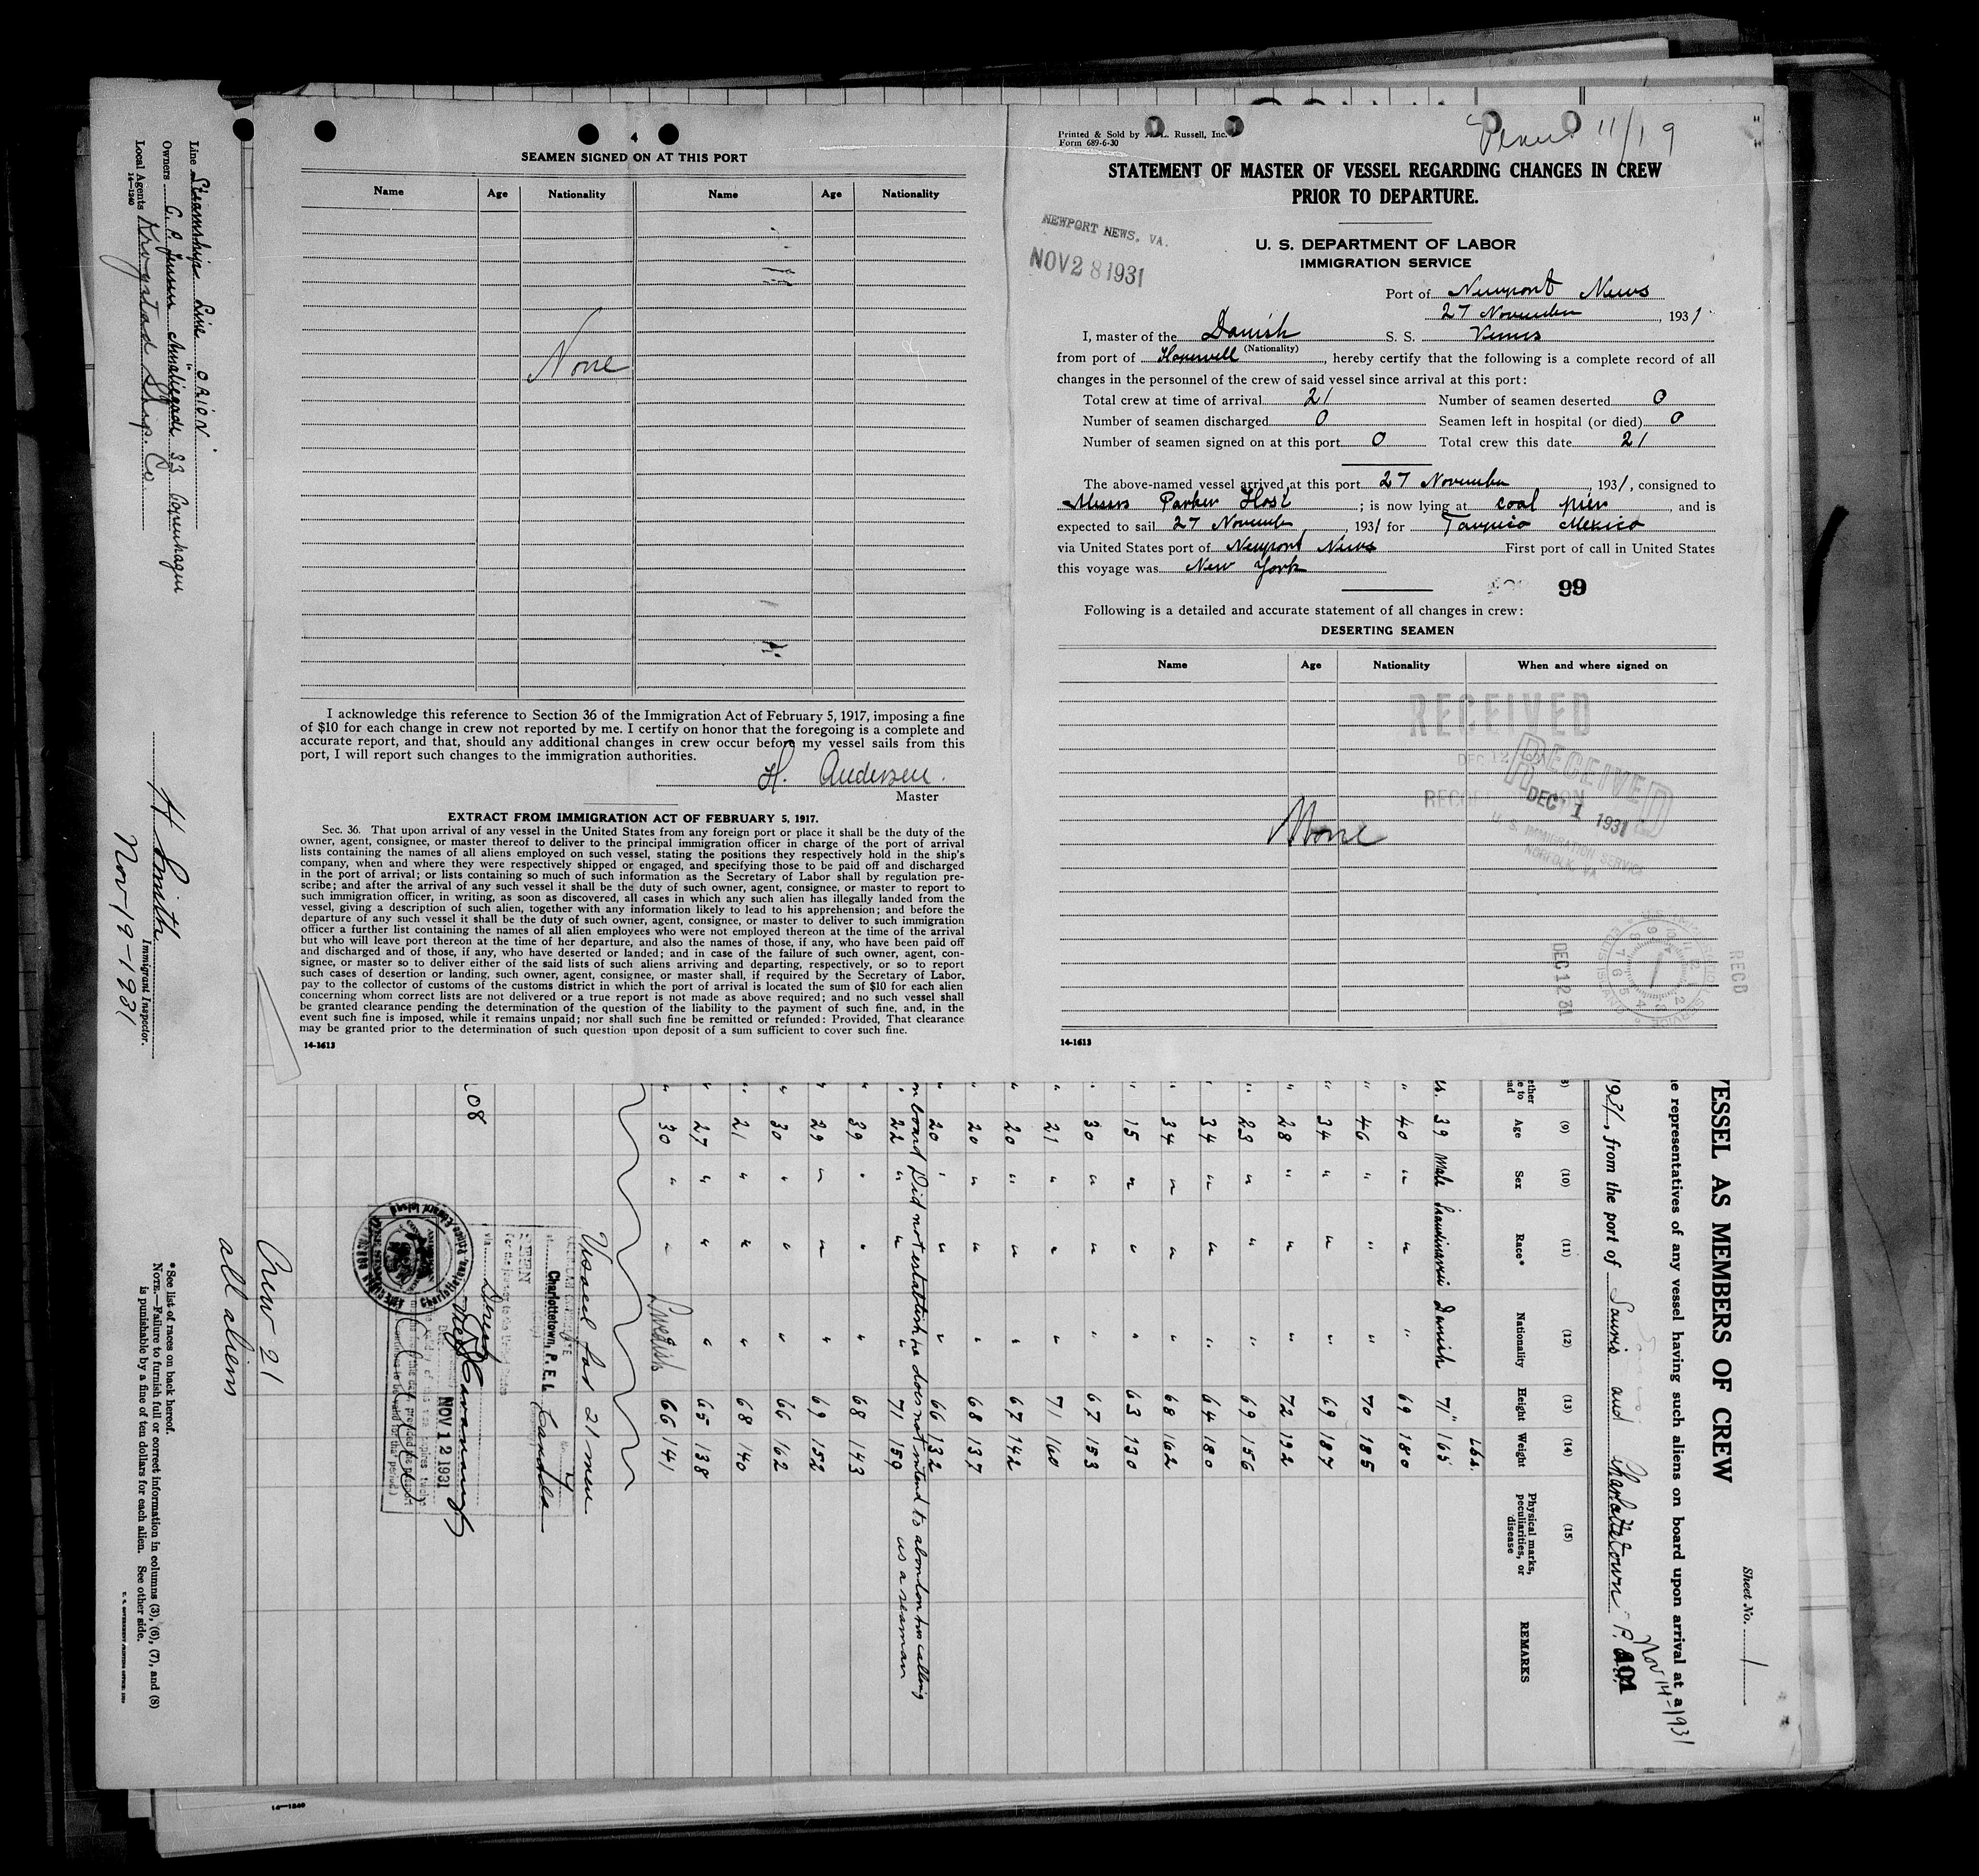 4
SEAMEN SIGNED ON AT THIS PORT
Name Age Nationality Name Age Nationality
None
I acknowledge this reference to Section 36 of the Immigration Act of February 5, 1917, imposing a fine
of $10 for each change in crew not reported by me. I certify on honor that the foregoing is a complete and
accurate report, and that, should any additional changes in crew occur before my vessel sails from this
port, I will report such changes to the immigration authorities.
H. Andersen.
Master
EXTRACT FROM IMMIGRATION ACT OF FEBRUARY 5, 1917.
Sec. 36. That upon arrival of any vessel in the United States from any foreign port or place it shall be the duty of the
owner, agent, consignee, or master thereof to deliver to the principal immigration officer in charge of the port of arrival
lists containing the names of all aliens employed on such vessel, stating the positions they respectively hold in the ship's
company, when and where they were respectively shipped or engaged, and specifying those to be paid off and discharged
in the port of arrival; or lists containing so much of such information as the Secretary of Labor shall by regulation pre-
scribe; and after the arrival of any such vessel it shall be the duty of such owner, agent, consignee, or master to report to
such immigration officer, in writing, as soon as discovered, all cases in which any such alien has illegally landed from the
vessel, giving a description of such alien, together with any information likely to lead to his apprehension; and before the
departure of any such vessel it shall be the duty of such owner, agent, consignee, or master to deliver to such immigration
officer a further list containing the names of all alien employees who were not employed thereon at the time of the arrival
but who will leave port thereon at the time of her departure, and also the names of those, if any, who have been paid off
and discharged and of those, if any, who have deserted or landed; and in case of the failure of such owner, agent, con-
signee, or master so to deliver either of the said lists of such aliens arriving and departing, respectively, or so to report
such cases of desertion or landing, such owner, agent, consignee, or master shall, if required by the Secretary of Labor,
pay to the collector of customs of the customs district in which the port of arrival is located the sum of $10 for each alien
concerning whom correct lists are not delivered or a true report is not made as above required; and no such vessel shall
be granted clearance pending the determination of the question of the liability to the payment of such fine, and, in the
event such fine is imposed, while it remains unpaid; nor shall such fine be remitted or refunded: Provided, That clearance
may be granted prior to the determination of such question upon deposit of a sum sufficient to cover such fine.
14-1613
Printed & Sold by Russell, Inc.
Form 689-6-30
11/19
STATEMENT OF MASTER OF VESSEL REGARDING CHANGES IN CREW
PRIOR TO DEPARTURE.
NEWPORT NEWS, VA.
NOV 28 1931
U. S. DEPARTMENT OF LABOR
IMMIGRATION SERVICE
Port of Newport News
27 November, 1931
I, master of the Danish S. S. Venus
(Nationality)
from port of , hereby certify that the following is a complete record of all
changes in the personnel of the crew of said vessel since arrival at this port:
Total crew at time of arrival 21 Number of seamen deserted 0
Number of seamen discharged 0 Seamen left in hospital (or died) 0
Number of seamen signed on at this port 0 Total crew this date 21
The above-named vessel arrived at this port 27 November, 1931, consigned to
Messrs Parker Host; is now lying at coal pier, and is
expected to sail 27 November, 1931 for Tampico Mexico
via United States port of Newport News First port of call in United States
this voyage was New York
99
Following is a detailed and accurate statement of all changes in crew:
DESERTING SEAMEN
Name Age Nationality When and where signed on
RECEIVED
DEC 12
RECEIVED
DEC 1 1931
U. S. IMMIGRATION SERVICE
NORFOLK, VA
None
DEC 12 31
REC'D
14-1613
Sheet No. 1
VESSEL AS MEMBERS OF CREW
representatives of any vessel having such aliens on board upon arrival at a
Nov 14-1931
1931, from the port of Souris and Charlottetown P.
(9) (10) (11) (12) (13) (14) (15)
Age Sex Race* Nationality Height Weight Physical marks, peculiarities, or disease REMARKS
Lbs.
39 Male Scandinavian Danish 71" 165
" 40 " " " 69 180
" 46 " " " 70 185
" 34 " " " 69 187
" 28 " " " 72 192
" 23 " " " 69 156
" 34 " " " 64 180
" 34 " " " 68 162
" 15 " " " 63 130
" 30 " " " 67 153
" 21 " " " 71 160
" 20 " " " 67 142
" 20 " " " 68 137
" 20 " " " 66 132
on board Did not establish he does not intend to abandon his calling
as a seaman
" 22 " " " 71 159
" 39 " " " 68 143
" 29 " " " 69 152
" 30 " " " 66 162
" 21 " " " 68 140
" 27 " " " 65 138
" 30 " " Swedish 66 141
Visaed for 21 men
Charlottetown, P. E. I. Canada
SEEN
NOV 12 1931
08
Crew 21
all aliens
*See list of races on back hereof.
NOTE.—Failure to furnish full or correct information in columns (3), (6), (7), and (8)
is punishable by a fine of ten dollars for each alien. See other side.
Line Steamships Line ORION
Owners C. P. Jensen Amaliegade 33 Copenhagen
Local Agents Krogstad Ship. Co.
14-1240
H Smith
Immigrant Inspector.
Nov-19-1931
14-1240